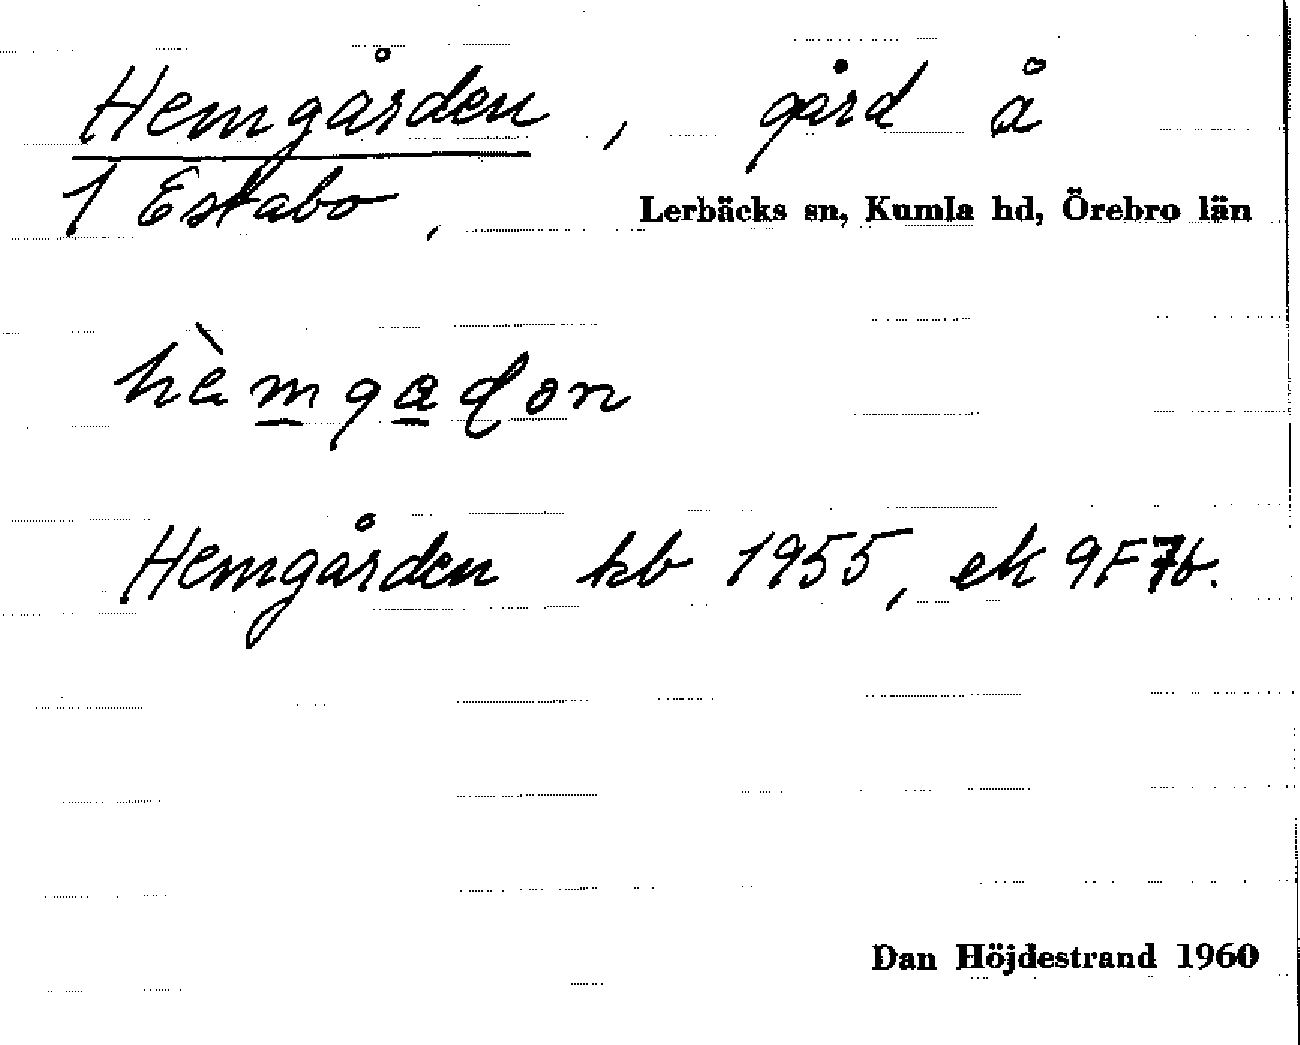 Hemgården, gård å
1 Estabo, Lerbäcks sn, Kumla hd, Örebro län
hèmgaɖon
Hemgården kb 1955, ek 9F7b.
Dan Höjdestrand 1960